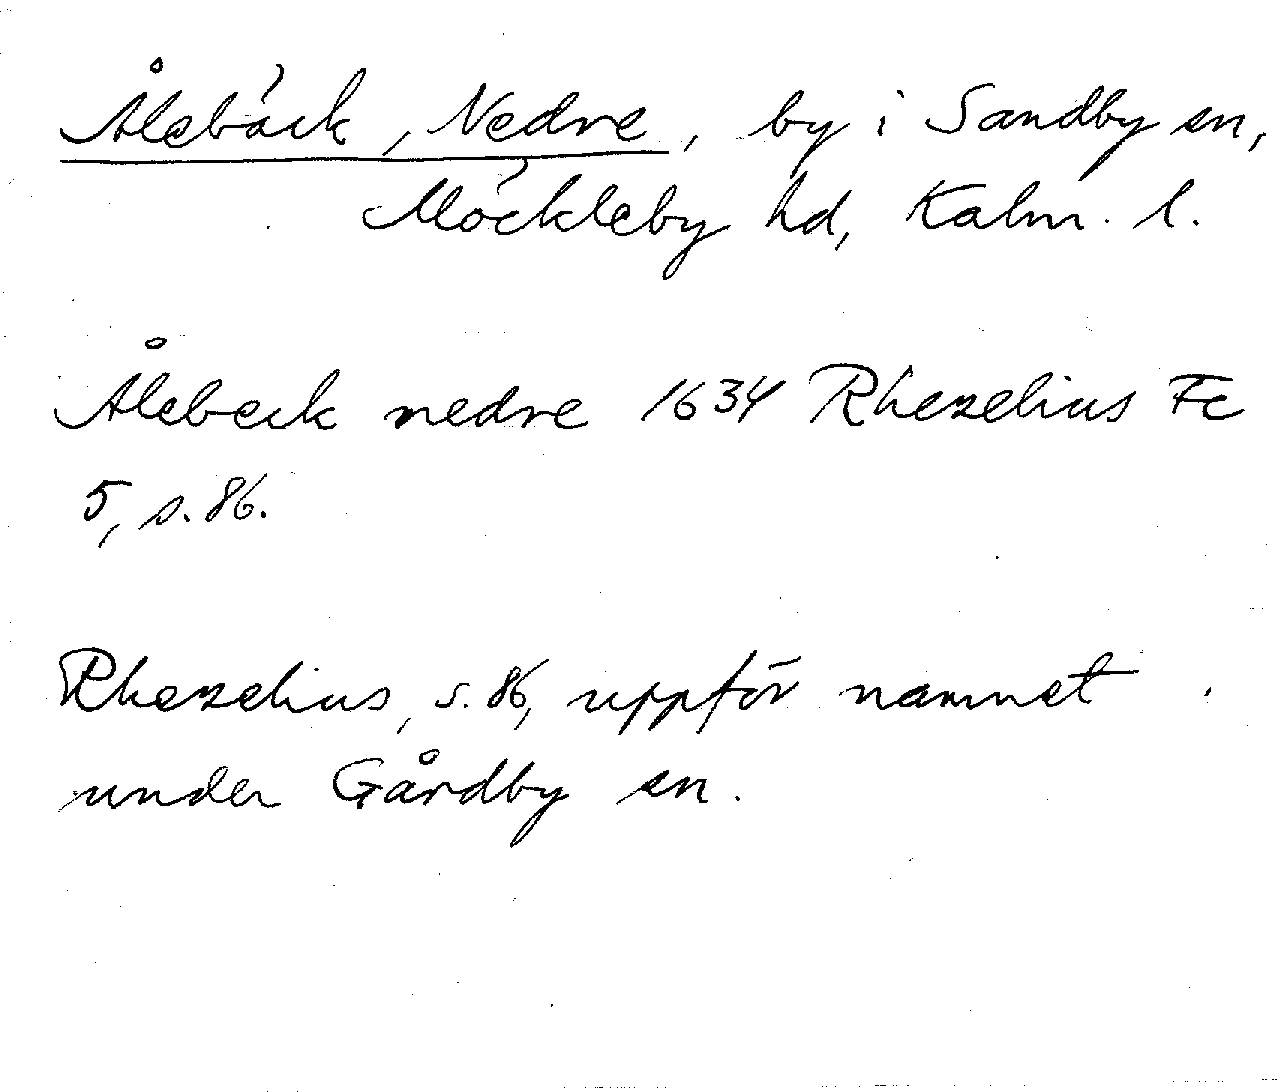 Ålebäck, Nedre, by i Sandby sn,
Möckleby hd, Kalm. l.
Ålebeck nedre 1634 Rhezelius Fc
5, s. 86.
Rhezelius, s. 86, uppför namnet
under Gårdby sn.